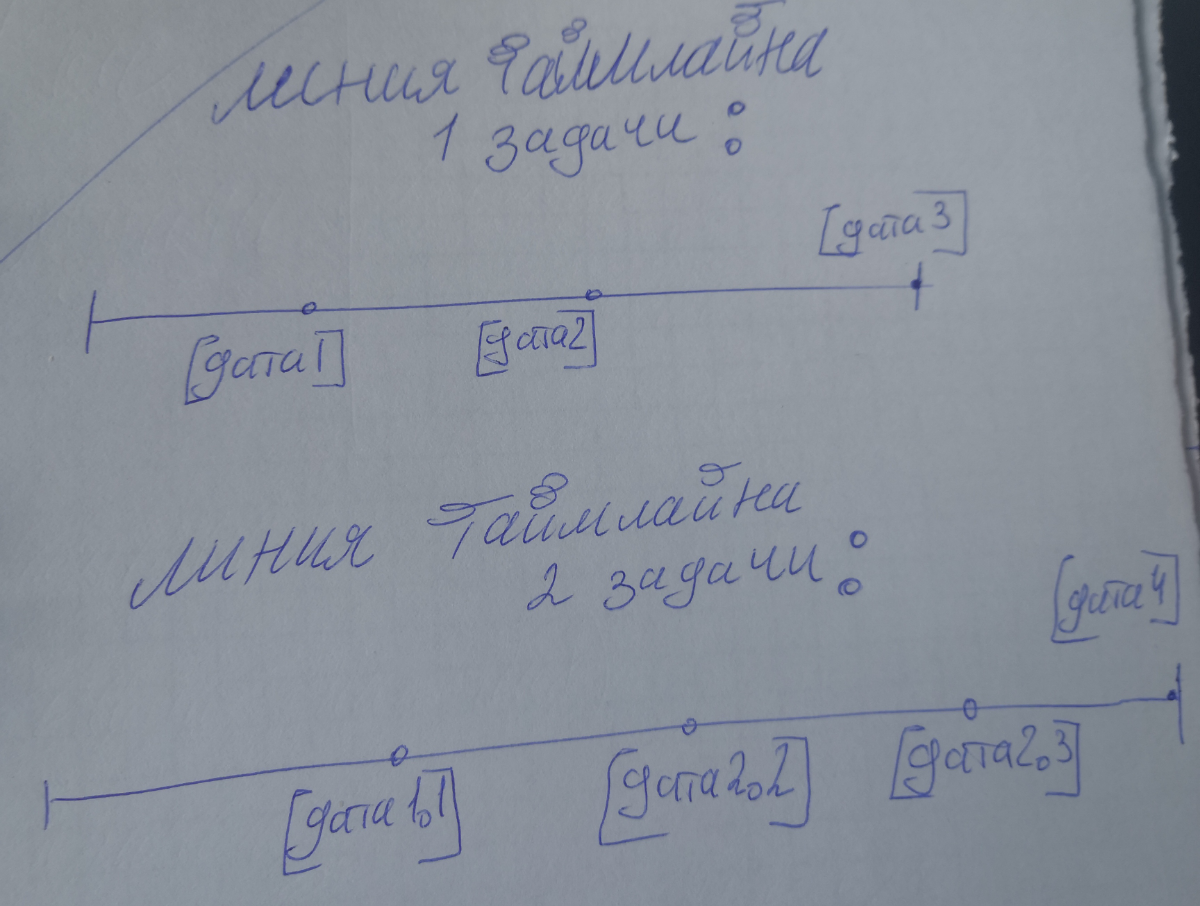 линия Таймлайна
1 задачи :
[дата 3]
[дата 1]
[дата 2]
линия Таймлайна
2 задачи :
[дата 4]
[дата 1.1]
[дата 2.2]
[дата 2.3]